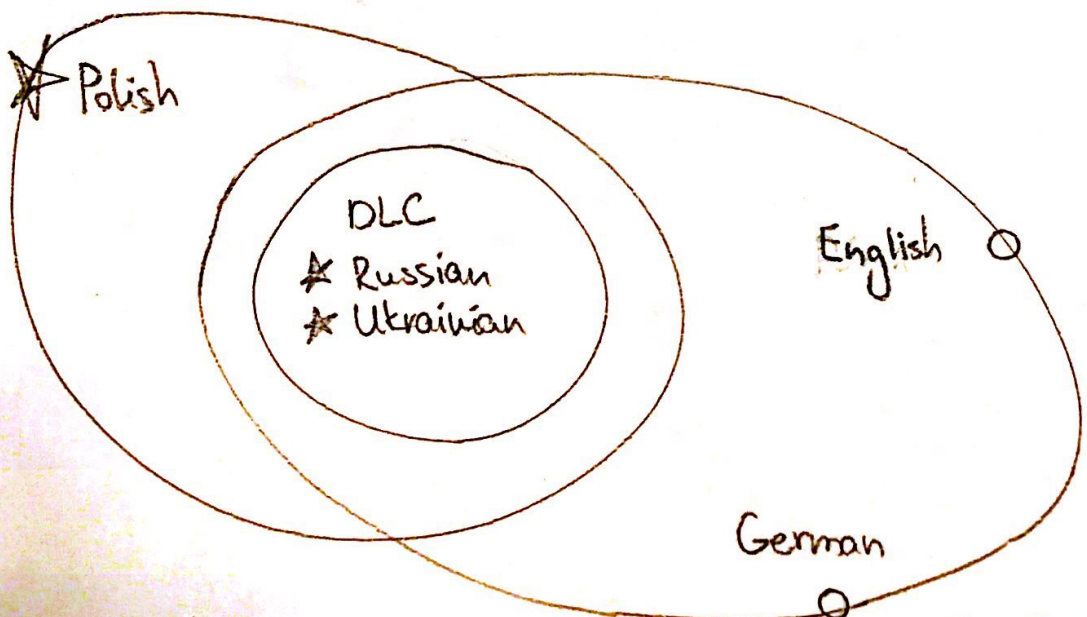 Polish
DLC
Russian
Ukrainian
English
German